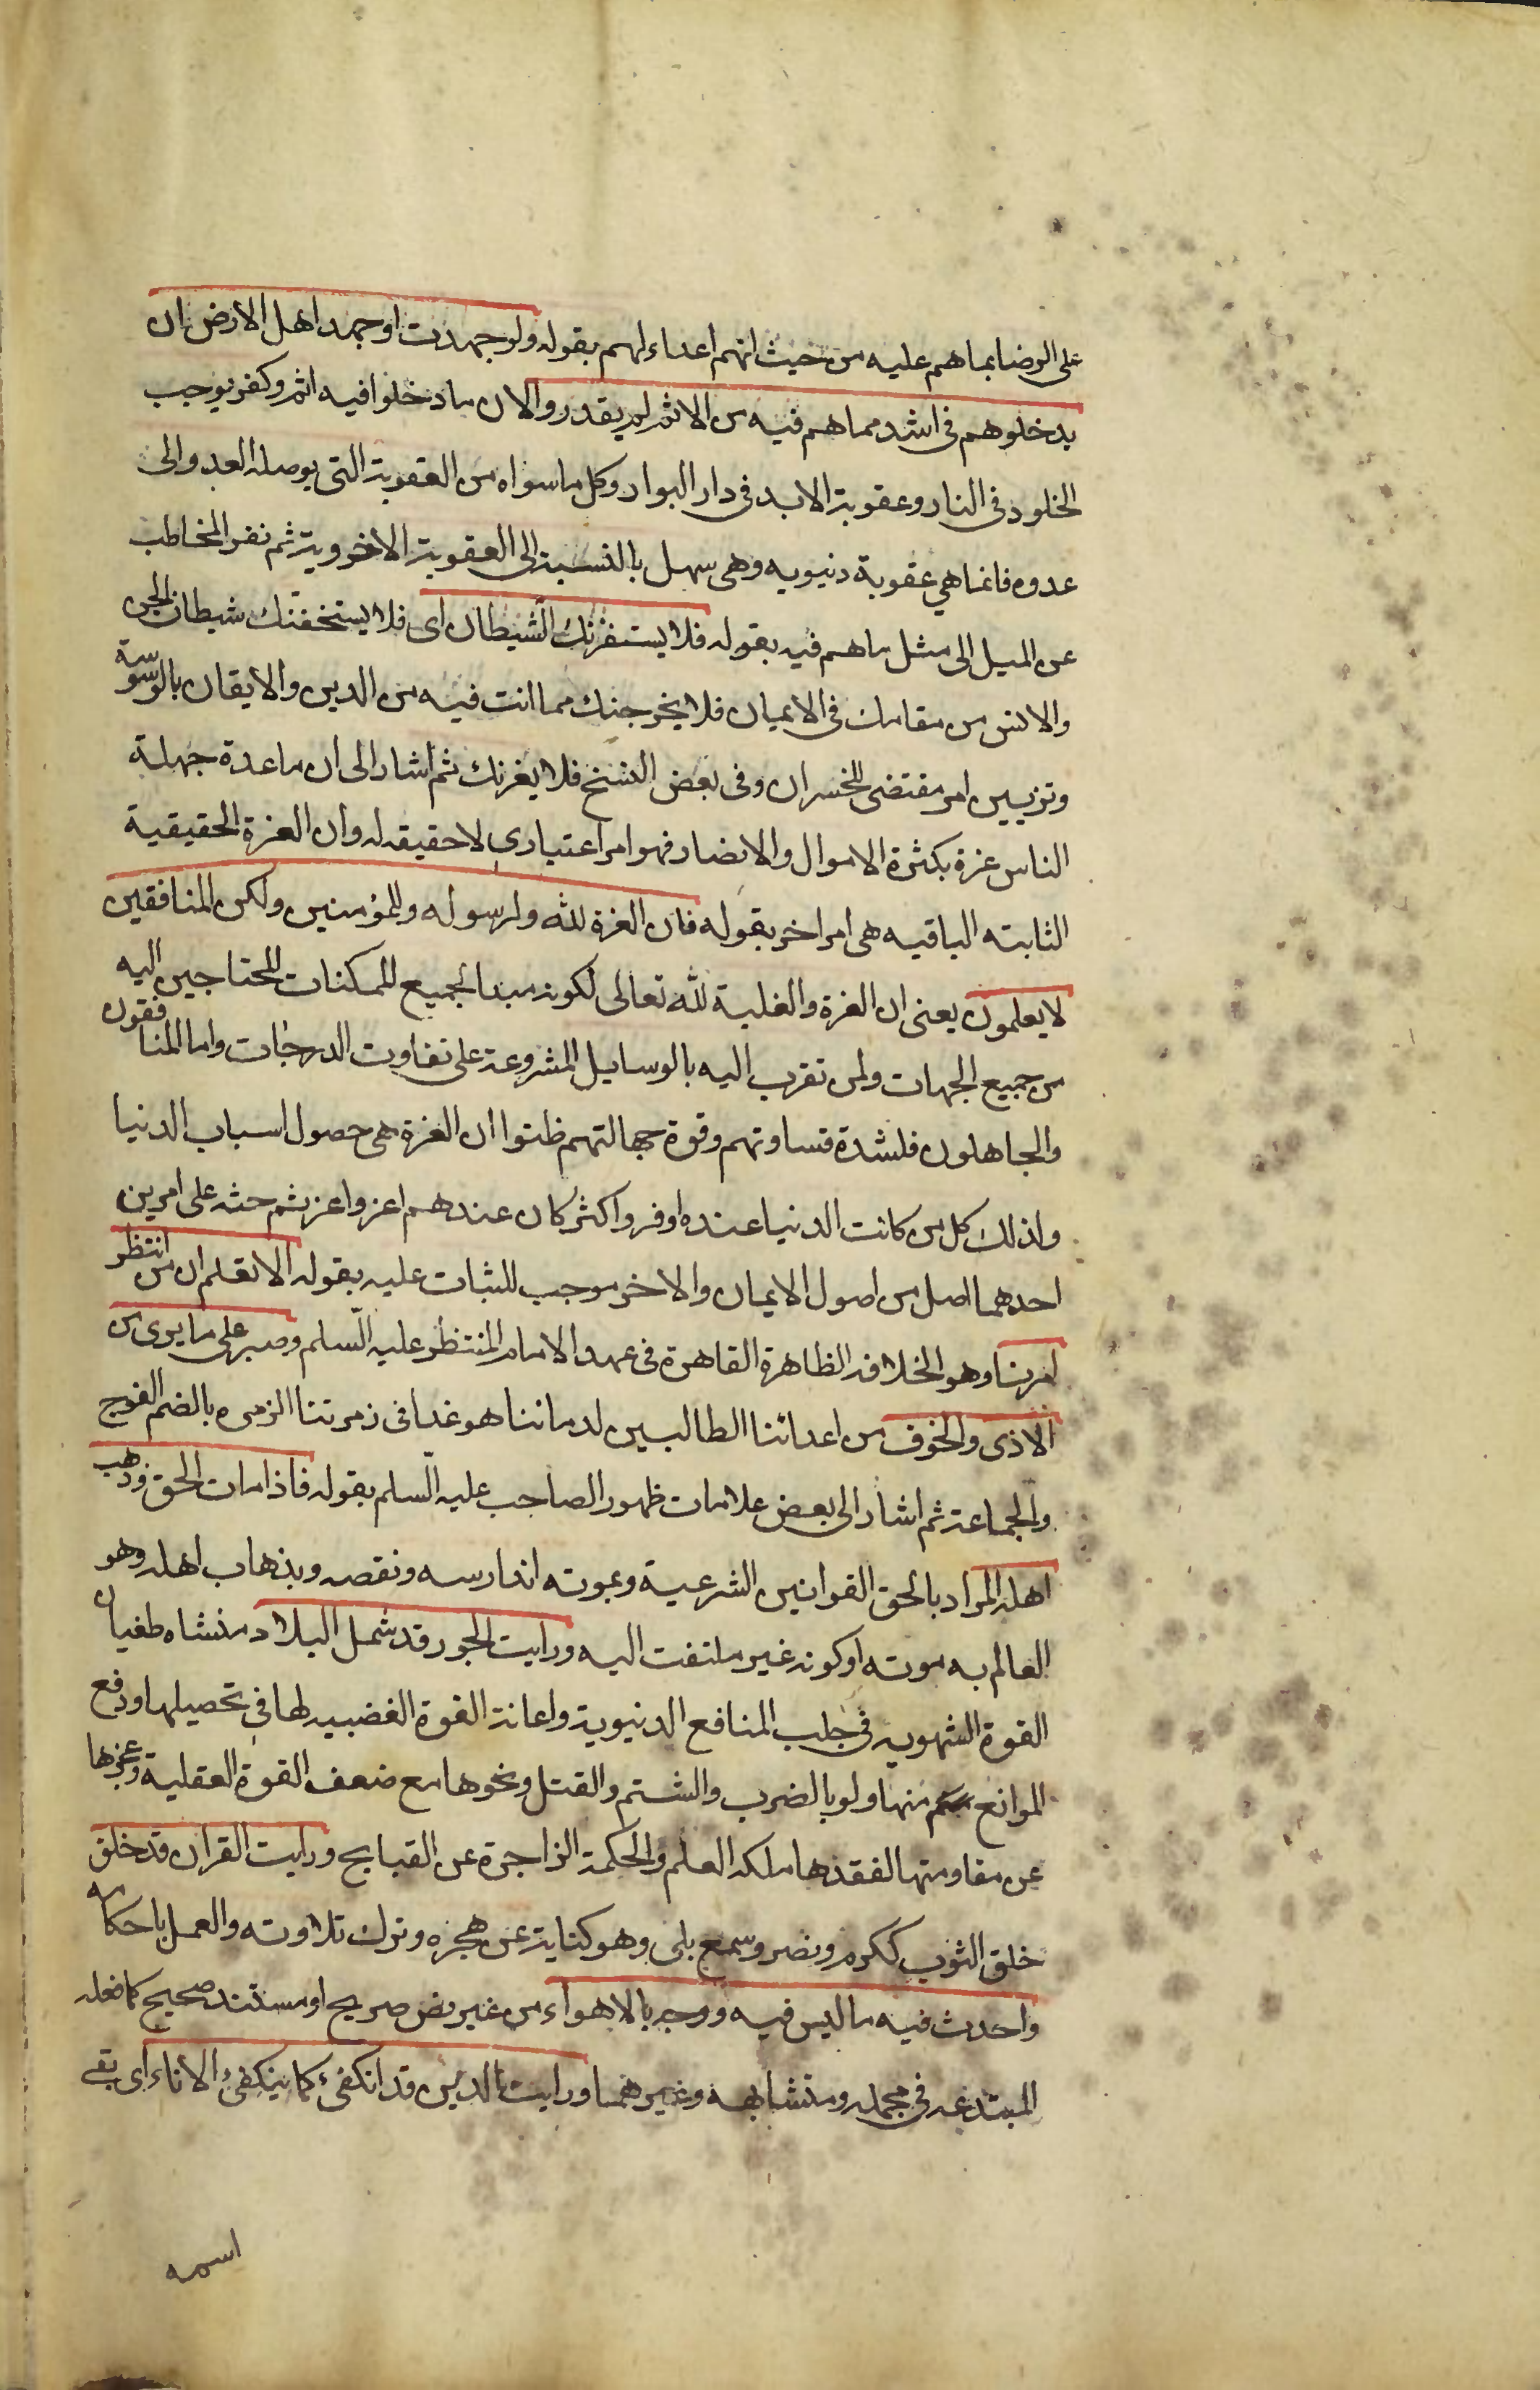 على الرضا بما هم عليه من حيث انهم اعداء لهم بقوله ولو جهدت او جهد اهل الارض ان
يدخلوهم فى اشد مما هم فيه من الاثم لم يقدروا لان ما دخلوا فيه اثم وكفر يوجب
الخلود فى النار وعقوبة الابد فى دار البوار وكل ما سواه من العقوبة التى يوصله العدو الى
عدوه فانما هي عقوبة دنيويه وهى سهل بالنسبة الى العقوبة الاخروية ثم نفر المخاطب
عن الميل الى مثل ما هم فيه بقوله فلا يستفزنك الشيطان اى فلا يستخفنك شيطان الجن
والانس من مقامك فى الايمان فلا يخرجنك مما انت فيه من الدين والايقان بالوسوسة
وتزيين امر مقتضى للخسران وفى بعض النسخ فلا يغرنك ثم اشار الى ان ما عدة جهلة
الناس عزة بكثرة الاموال والانصار فهو امر اعتبارى لا حقيقه له وان العزة الحقيقية
الثابته الباقيه هى امر اخر بقوله فان العزة لله ولرسوله وللمؤمنين ولكن المنافقين
لا يعلمون يعنى ان العزة والغلبة لله تعالى لكونه مبدا لجميع الممكنات المحتاجين اليه
من جميع الجهات ولمن تقرب اليه بالوسايل المشروعة على تفاوت الدرجات واما المنافقون
والجاهلون فلشدة قساوتهم وقوة جهالتهم ظنوا ان العزة هى حصول اسباب الدنيا
ولذلك كل من كانت الدنيا عنده اوفر واكثر كان عندهم اعز واعز ثم حثه على امرين
احدهما اصل من اصول الايمان والاخر موجب للثبات عليه بقوله الا تعلم ان من انتظر
امرنا وهو الخلافة الظاهرة القاهرة فى عهد الامام المنتظر عليه السلم وصبر على ما يرى من
الاذى والخوف من اعدائنا الطالبين لدمائنا هو غدا فى زمرتنا الزمرة بالضم الفوج
والجماعة ثم اشار الى بعض علامات ظهور الصاحب عليه السلم بقوله فاذا مات الحق وذهب
اهله المراد بالحق القوانين الشرعية وبموته اندارسه ونقصه وبذهاب اهله وهو
العالم به موته او كونه غير ملتفت اليه ورايت الجور قد شمل البلاد منشاه طغيان
القوة الشهويه فى جلب المنافع الدنيوية واعانة القوة الغضبيه لها فى تحصيلها ودفع
الموانع منها ولو بالضرب والشتم والقتل ونحوها مع ضعف القوة العقلية وعجزها
عن مقاومتها لفقدها ملكه العلم والحكمة الزاجرة عن القبايح ورايت القران قد خلق
خلق الثوب ككرم ونصر وسمع بلى وهو كناية عن هجره وترك تلاوته والعمل باحكامه
واحدث فيه ما ليس فيه ووجه بالاهواء من غير نص صريح او مستند صحيح كما فعله
المبتدعه فى مجمله ومتشابهه وغيرهما ورايت الدين قد انكفئ كما ينكفئ الاناء اى بقى
اسمه